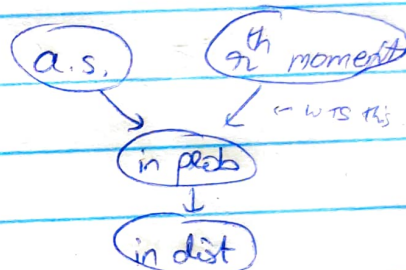 a.s.
rth moment
← WTS this
in prob
in dist